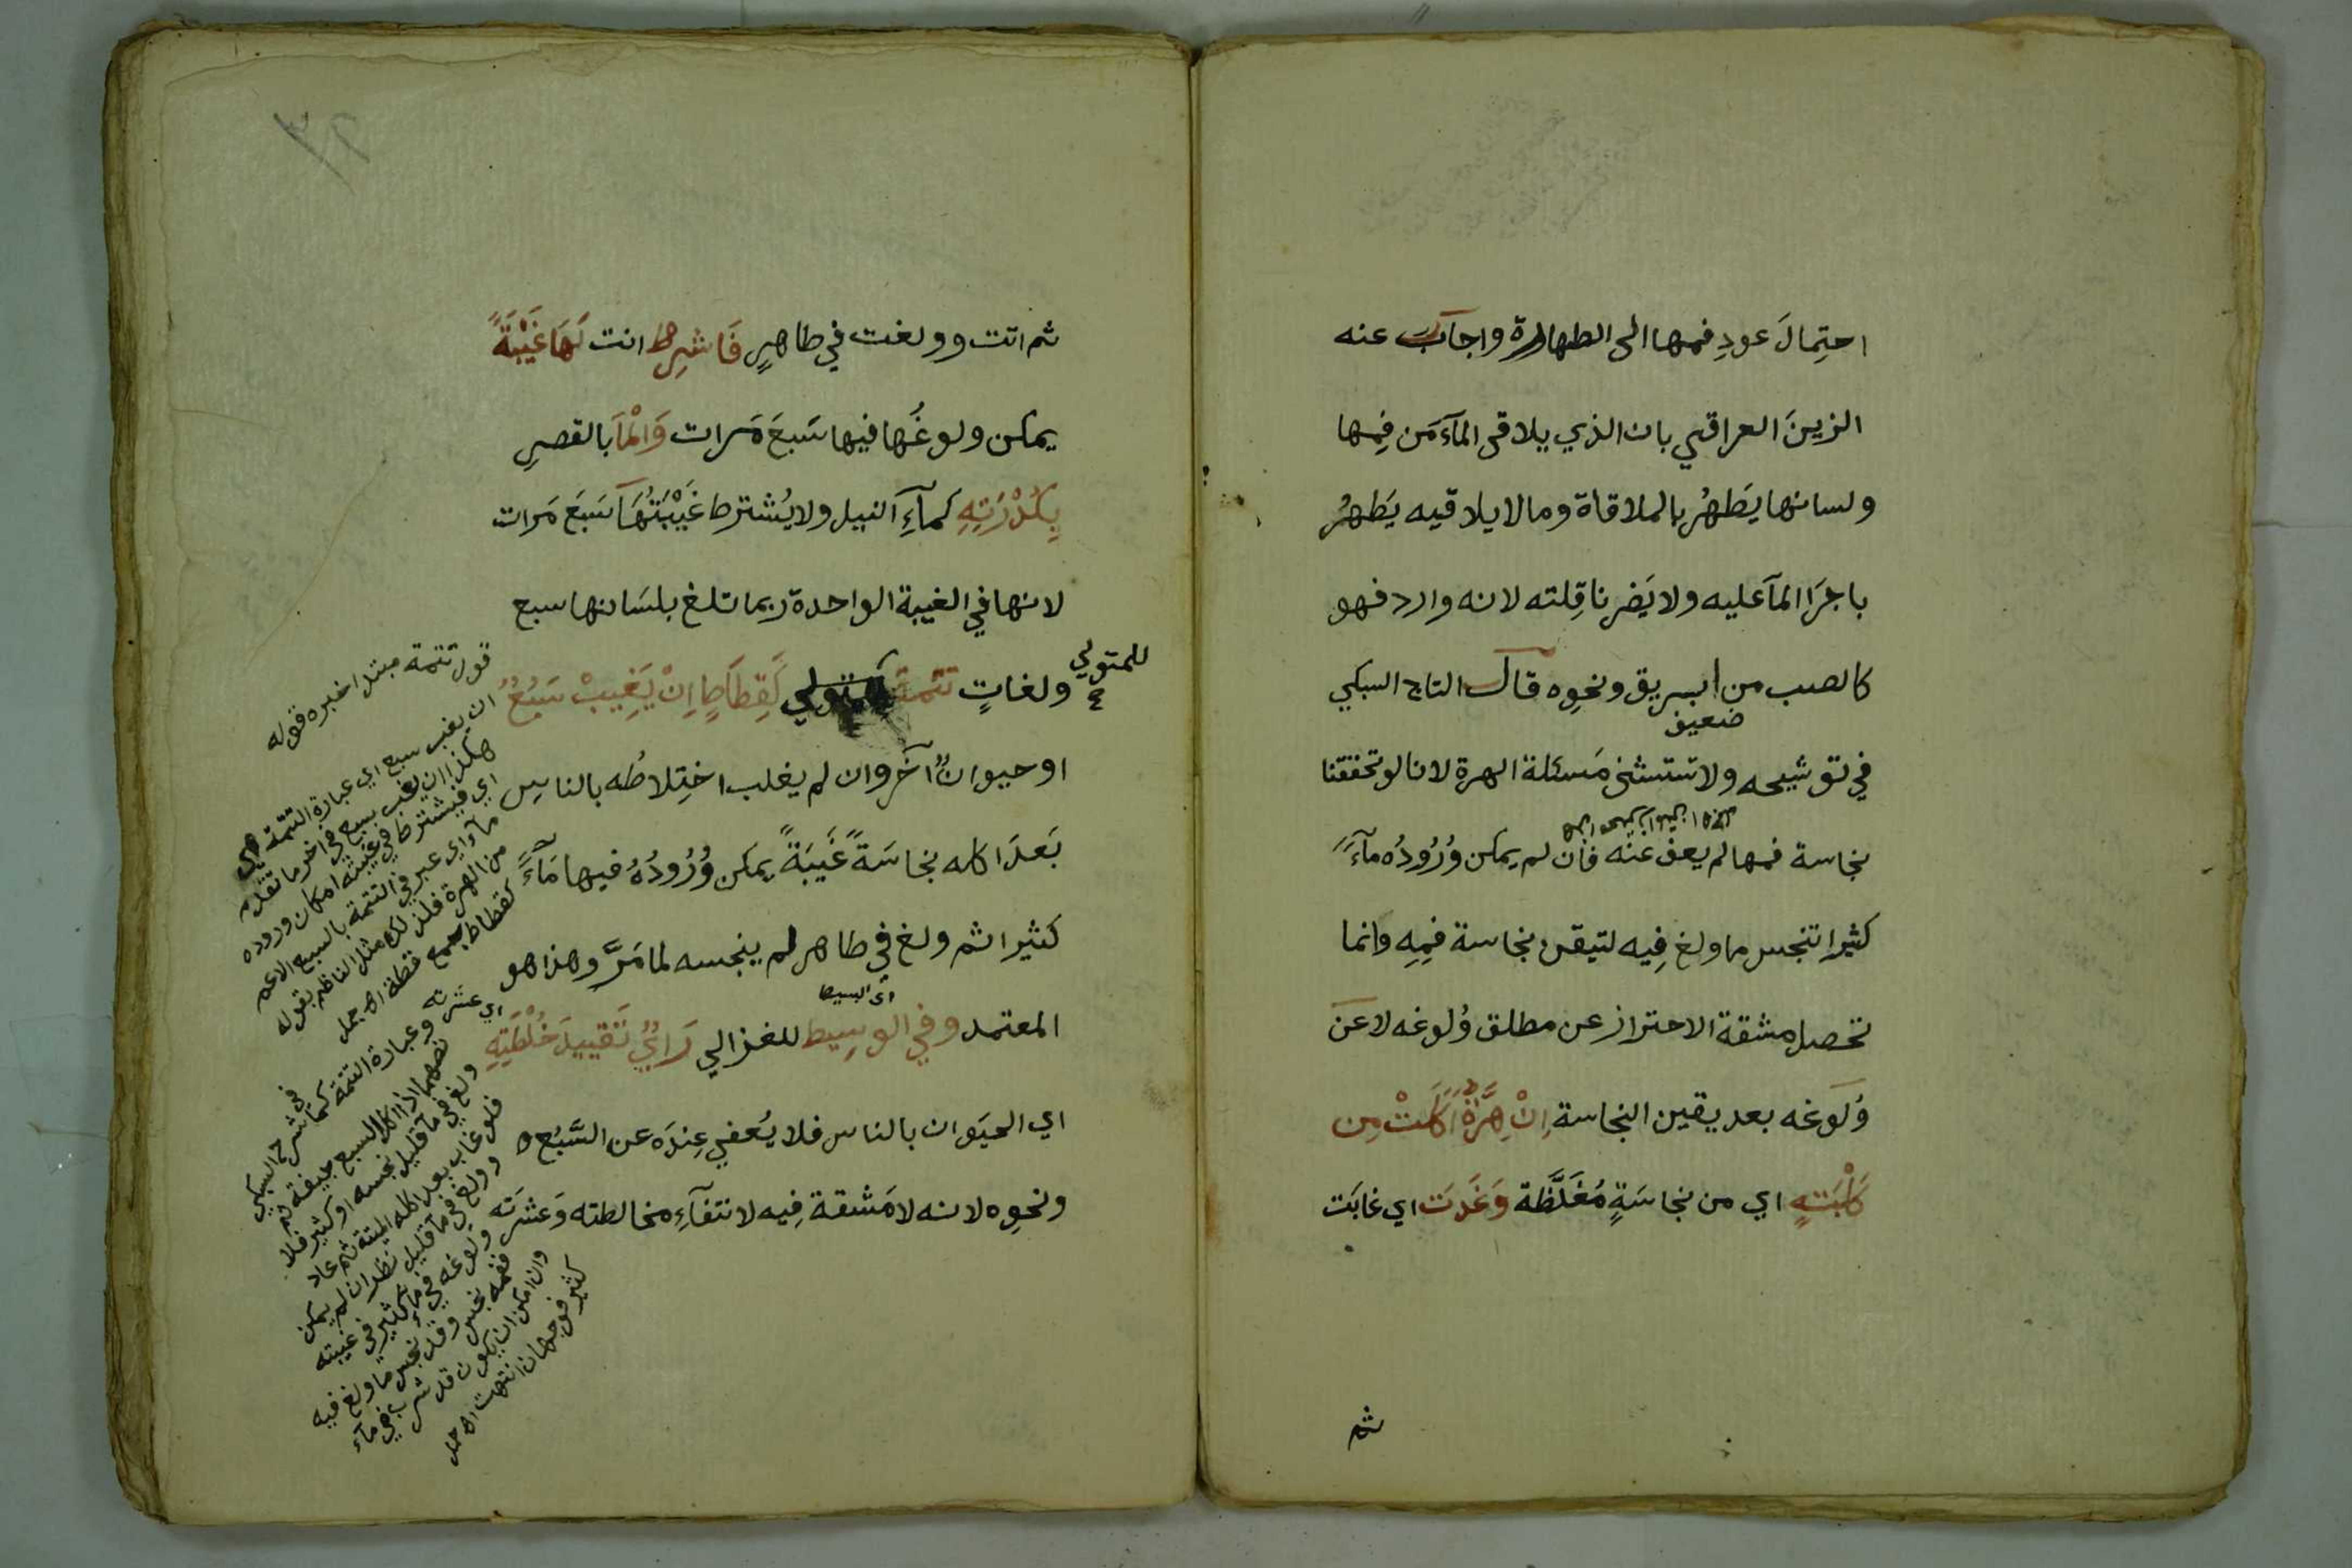 احتِمالَ عودِ فمها الى الطهارة واجاب عنه
الزينَ العراقي بان الذي يلاقى المآءَ مَن فِمها
ولسانها يَطهُر بالملاقاة وما لا يلاقيه يَطهُر
باجرَا المآ عليه ولا يَضرنا قِلته لانه وارد فهو
كالصب من ابريق ونحوِه قال التاج السبكي
ضعيف
في توشيحه ولا تستثنى مَسئلة الهرة لانا لو تحققنا
نجاسة فمها لم يعف عنه فان لم يمكن وُرُودُه مآءً
كثيرا تنجس ما ولغ فِيه لتيقن نجاسة فمِهِ وانما
تحصل مشقة الاحتراز عن مطلق وُلوغه لا عَن
وُلَوغه بعد يقين النجاسة اِنْ هِرَّةٌ اَكَلَتْ مِن
كَلْبَتهٍ اي من نجاسَةٍ مُغَلَّظة وَغَدَت اي غابَت
ثم
ثم اتت وولغت في طاهرٍ فَاشرِط انت لَهَا غَيْبَةً
يمكن ولوغُها فيها سَبعَ مَرات وَالْمَا بالقصرِ
بِكُدْرَتِهِ كمآءِ النيل ولا يُشترط غَيْبَتُهَا سَبعَ مَرات
لانها في الغيبة الواحدة ربما تلغ بلسَانها سبع
للمتولي
ولغاتٍ تتمة كمتولي لَقِطَاطٍ اِنْ يَغِيبْ سَبُعٌ
او حيوانٌ آخَر وان لم يغلب اختِلاطُه بالناسِ
بَعدَ اكله نجاسَةً غَيبَةً يمكن وُرُودُهُ فيها مَآءً
كثيرا ثم ولغ في طاهر لم ينجسه لما مَرَّ وهذا هو
اى البسيط
المعتمد وفي الوسِيط للغزالي رَايٌ تَقييدَ خُلْطَتِهِ
اي الحيَوان بالناس فلا يُعفي عِندَه عن السَّبُع
ونحوِه لانه لا مَشقة فِيه لانتفآءِ مخالطته وَعشرَته
قوله تتمة مبتدا خبره قوله
ان يغب سبع اي عبارة التتمة هي
هكذا ان يغب سبع في اخر ما تقدم
اي فيشترط في غيبته امكان وروده
مآء اي عبر في التتمة بالسبع الاعم
من الهرة فلذلك مثل الناظم بقوله
كقطاط جمع قطة اه جمل
اي عشرته وعبارة التتمة كما في شرح السبكي
نصهما اذا اكل السبع جيفة ثم
ولغ في مآ قليل نجسه او كثير فلا
فلو غاب بعد اكله الميتة ثم عاد
وولغ في مآ قليل نظر ان لم يمكن
ولوغه في مآء كثير في غيبته
ففمه نجس وقد نجس ما ولغ فيه
وان امكن ان يكون قد شرب في مآء
كثير فوجهان انتهت اه جمل